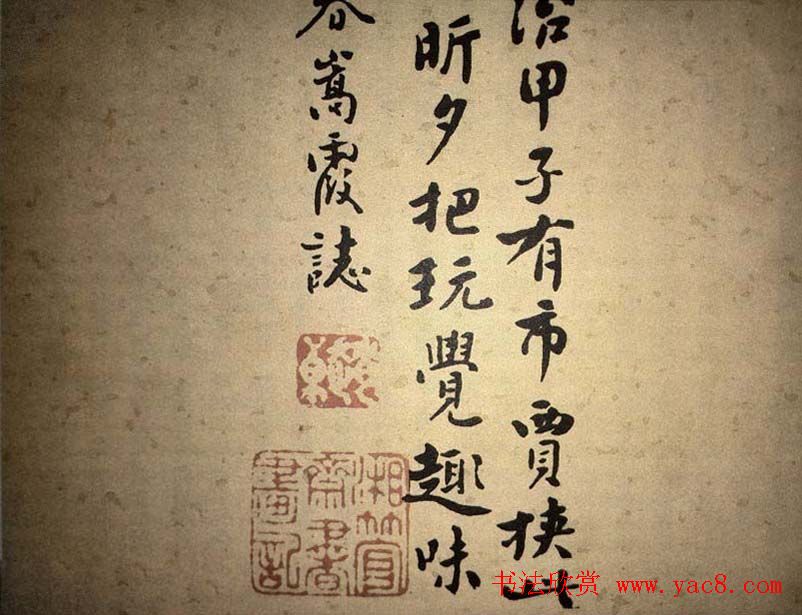 治甲子有市賈挾此
昕夕把玩覺趣味
春嵩霞誌
湘管
齋書
畫記
书法欣赏 www.yac8.com